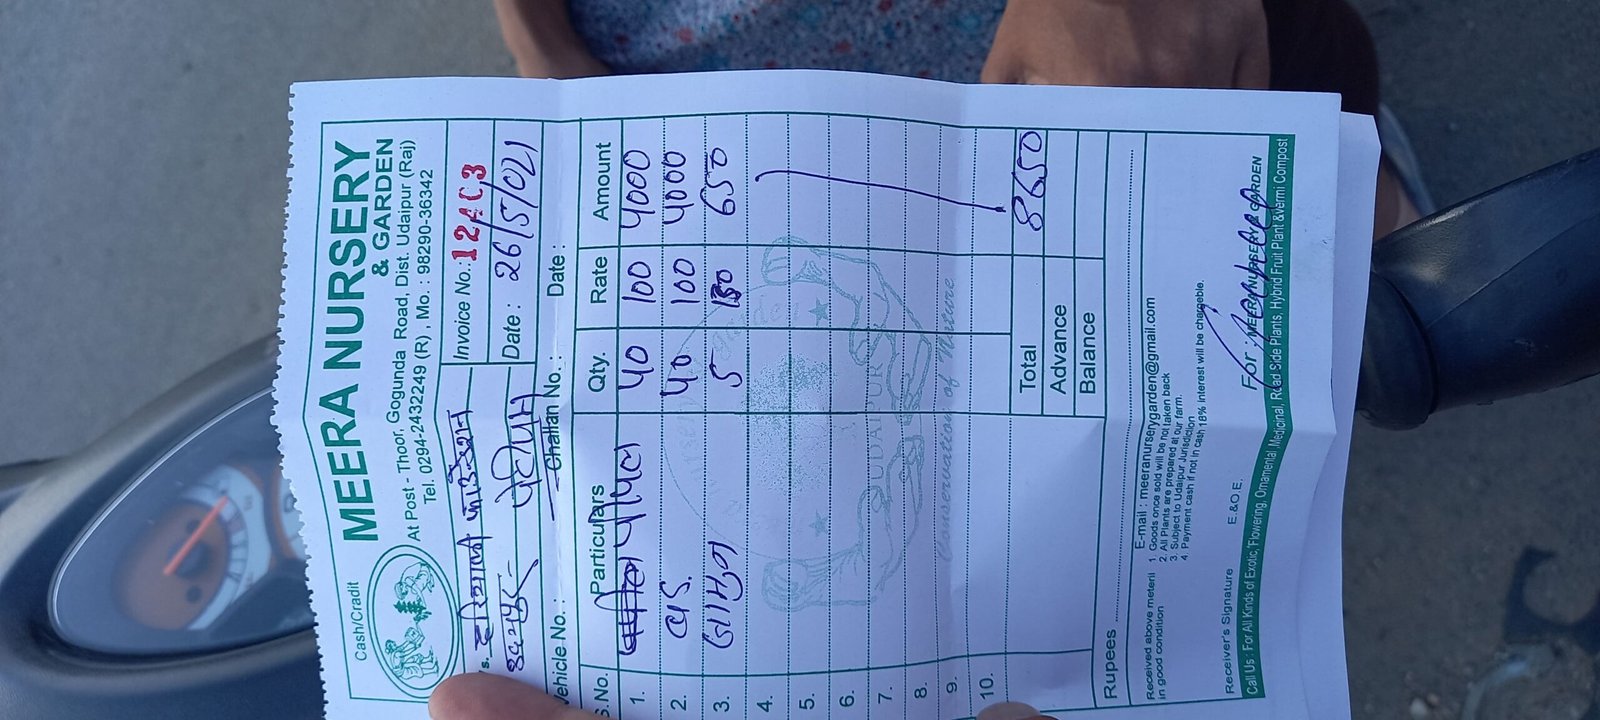 Cash/Cradit
MEERA NURSERY
& GARDEN
At Post - Thoor, Gogunda Road, Dist. Udaipur (Raj)
Tel. 0294-2432249 (R) , Mo. : 98290-36342
s. हरियाली फाउंडेशन
Invoice No.:
उदयपुर
Date : 26/5/021
Vehicle No.: Challan No.: Date :
S.No. Particulars Qty. Rate Amount
1. पीपल 40 100 4000
2. बड़ 40 100 4000
3. जामुन 5 650
4.
5.
6.
7.
8.
9.
10.
UDAIPUR
Conservation of Nature
Total 8650
Advance
Balance
Rupees
Received above meteril
in good condition
E-mail : meeranurserygarden@gmail.com
1 Goods once sold will be not taken back
2. All Plants are prepared at our farm.
3. Subject to Udaipur Jurisdiction
4. Payment cash if not in cash 18% interest will be chargeble.
Receiver's Signature E.&O.E. For : MEERA NURSERY & GARDEN
Call Us : For All Kinds of Exotic, Flowering, Ornamental, Medicinal, Road Side Plants, Hybrid Fruit Plant & Vermi Compost